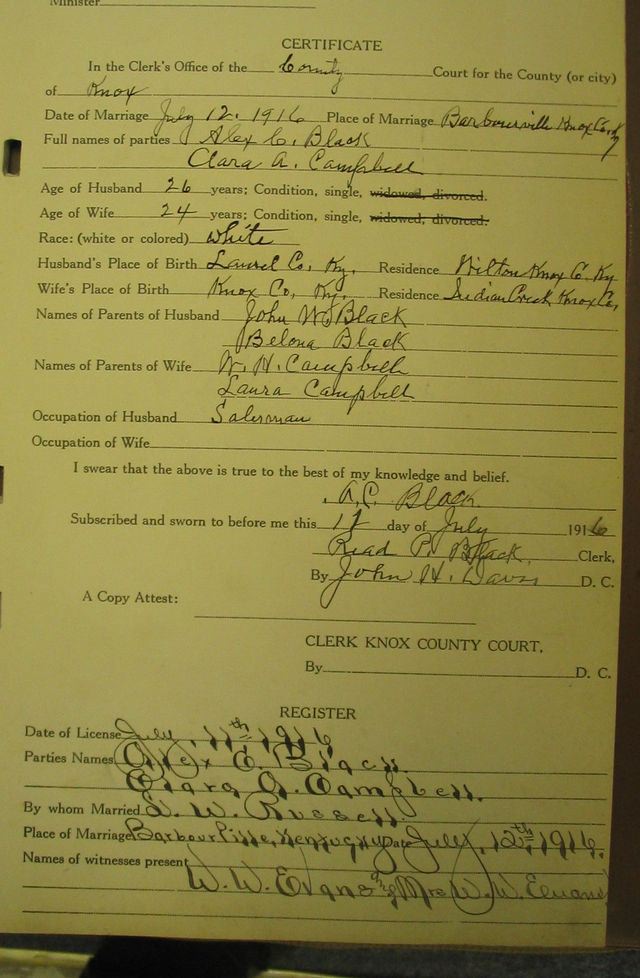 Minister
CERTIFICATE
In the Clerk's Office of the County Court for the County (or city)
of Knox
Date of Marriage July 12. 1916 Place of Marriage Barbourville Knox Co. Ky
Full names of parties Alex C. Black
Clara A. Campbell
Age of Husband 26 years; Condition, single, widowed, divorced.
Age of Wife 24 years; Condition, single, widowed, divorced.
Race: (white or colored) white
Husband's Place of Birth Laurel Co. Ky. Residence Wilton Knox Co. Ky
Wife's Place of Birth Knox Co, Ky. Residence Indian Creek Knox Co,
Names of Parents of Husband John W. Black
Belona Black
Names of Parents of Wife W. H. Campbell
Laura Campbell
Occupation of Husband Salesman
Occupation of Wife
I swear that the above is true to the best of my knowledge and belief.
A. C. Black
Subscribed and sworn to before me this day of July 1916
Read P. Black, Clerk,
By John H. Davis D. C.
A Copy Attest:
CLERK KNOX COUNTY COURT,
By D. C.
REGISTER
Date of License July, 11th 1916
Parties Names Alex C. Black.
Clara A. Campbell.
By whom Married W. Russell.
Place of Marriage Barbourville, Kentucky July, 12th, 1916.
Names of witnesses present
W. W. Evans & Mrs W. W. Evans